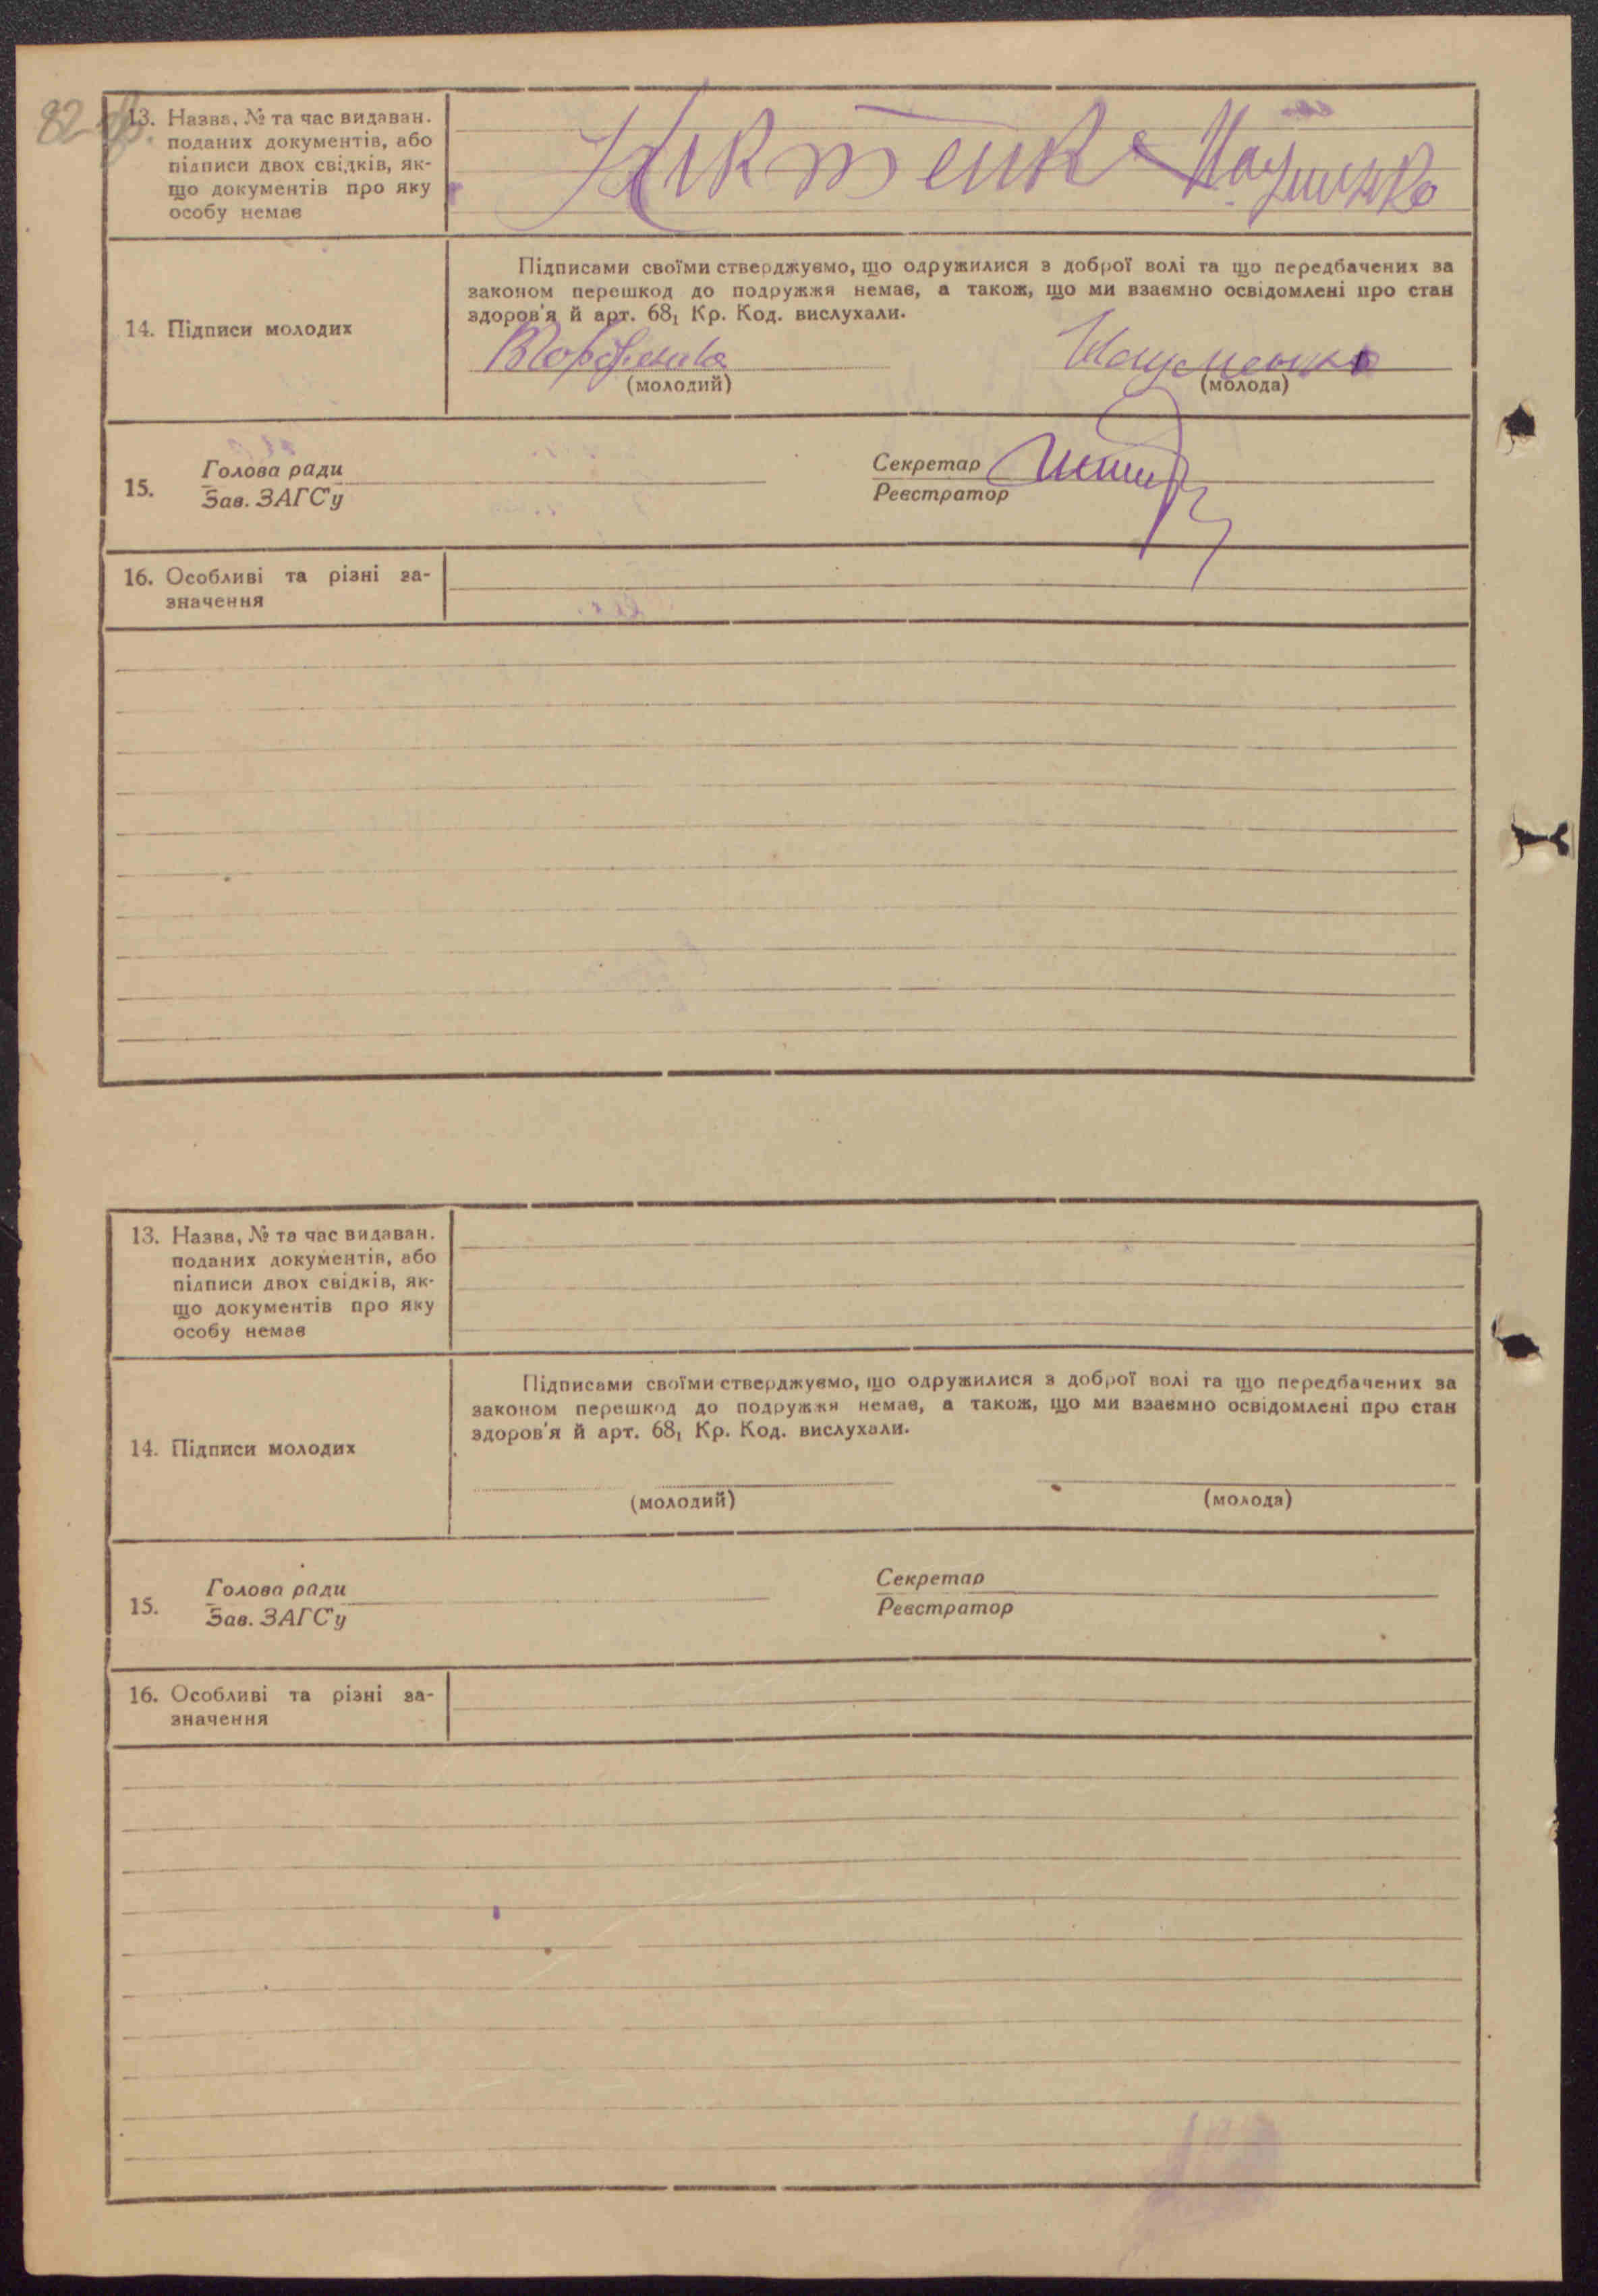 82 об.
13. Назва, № та час видаван.
поданих документів, або
підписи двох свідків, як-
що документів про яку
особу немає
14. Підписи молодих
Підписами своїми стверджуємо, що одружилися з доброї волі та що передбачених за
законом перешкод до подружжя немає, а також, що ми взаємно освідомлені про стан
здоров'я й арт. 68₁ Кр. Код. вислухали.
Науменко
(молодий) (молода)
15. Голова ради
Зав. ЗАГС'у
Секретар
Реєстратор
16. Особливі та різні за-
значення
13. Назва, № та час видаван.
поданих документів, або
підписи двох свідків, як-
що документів про яку
особу немає
14. Підписи молодих
Підписами своїми стверджуємо, що одружилися з доброї волі та що передбачених за
законом перешкод до подружжя немає, а також, що ми взаємно освідомлені про стан
здоров'я й арт. 68₁ Кр. Код. вислухали.
(молодий) (молода)
15. Голова ради
Зав. ЗАГС'у
Секретар
Реєстратор
16. Особливі та різні за-
значення